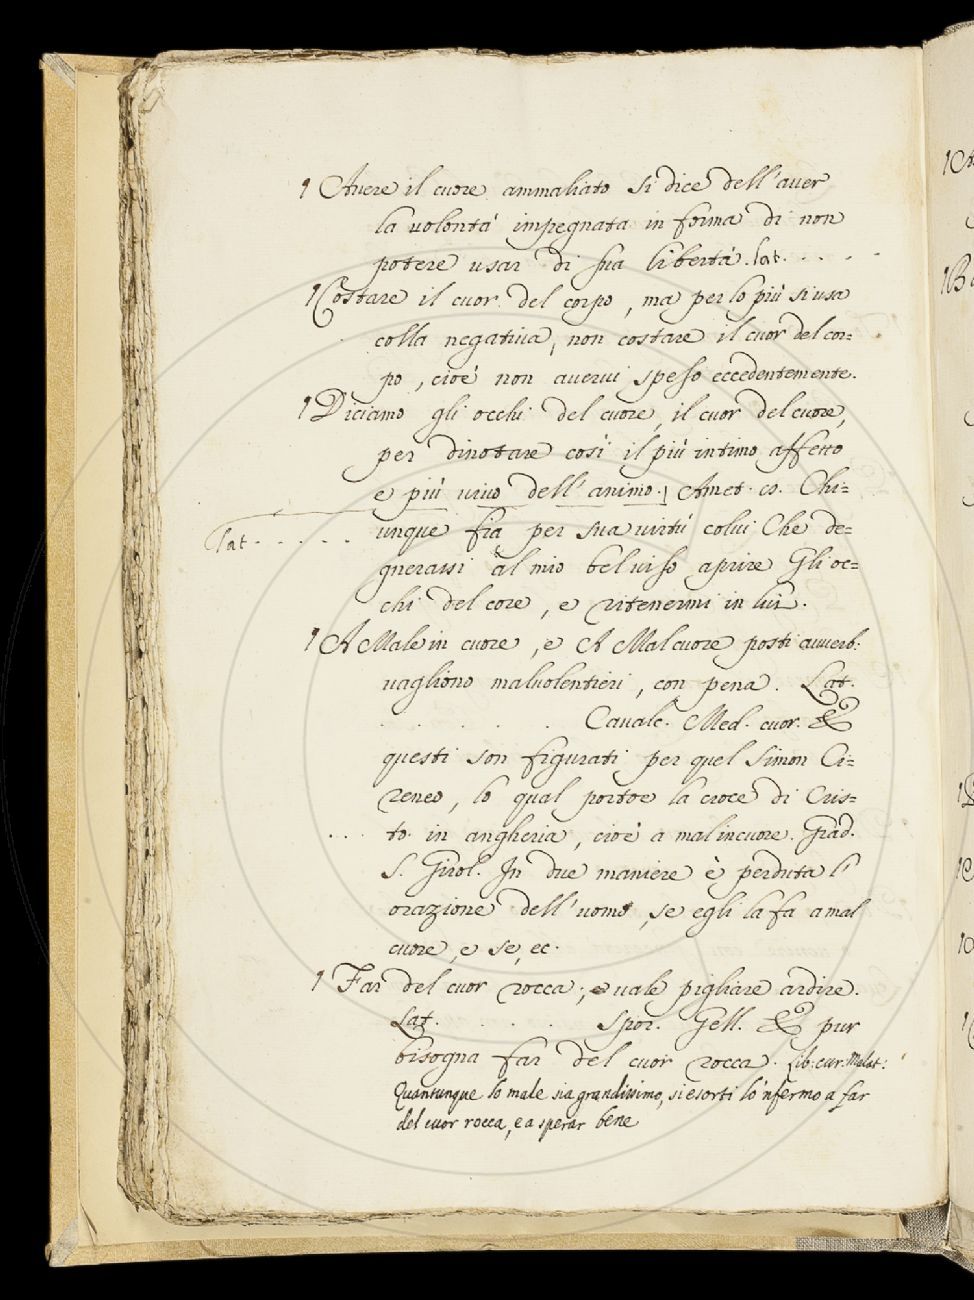 ¶ Avere il cuore ammaliato si dice dell'aver
la volontà impegnata in forma di non
potere usar di sua libertà. lat. . . . .
¶ Costare il cuor del corpo, ma per lo più si usa
colla negativa, non costare il cuor del cor=
po, cioè non avervi speso eccedentemente.
¶ Diciamo gli occhi del cuore, il cuor del cuore,
per dinotare così il più intimo affetto
e più vivo dell'animo. Amet. 
Chi=
lat. . . . . . unque fia per sua virtù colui Che de=
gnerassi al mio bel viso aprire Gli oc=
chi del core, e ritenermi in lui.
¶ A Male in cuore, e A Mal cuore posti avverb:
vagliono malvolentieri, con pena. Lat.
. . . . . Cavalc. Med. cuor. E
questi son figurati per quel Simon Ci=
reneo, lo qual portoe la croce di Cris=
. . . to in angheria, cioè a malincuore. Grad.
S. Girol. In due maniere è perduta l'
orazione dell'uomo, se egli la fa a mal
cuore, e se, ec.
¶ Far del cuor rocca; vale pigliare ardire.
Lat. . . . . . Spor. Gell. E pur
bisogna far del cuor rocca. Lib: cur: Malat:
Quantunque lo male sia grandissimo, si esorti lo 'nfermo a far
del cuor rocca, e a sperar bene